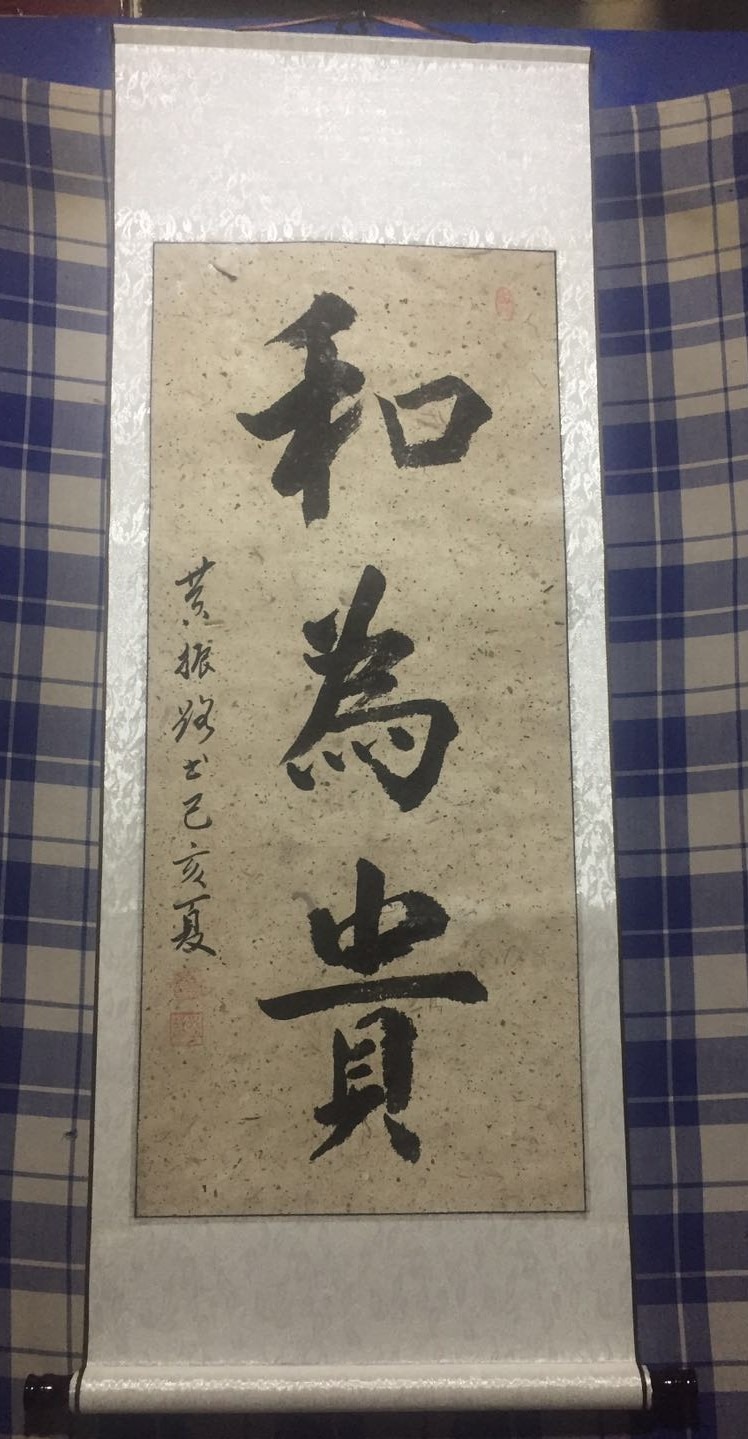 和為貴
黄振路书己亥夏